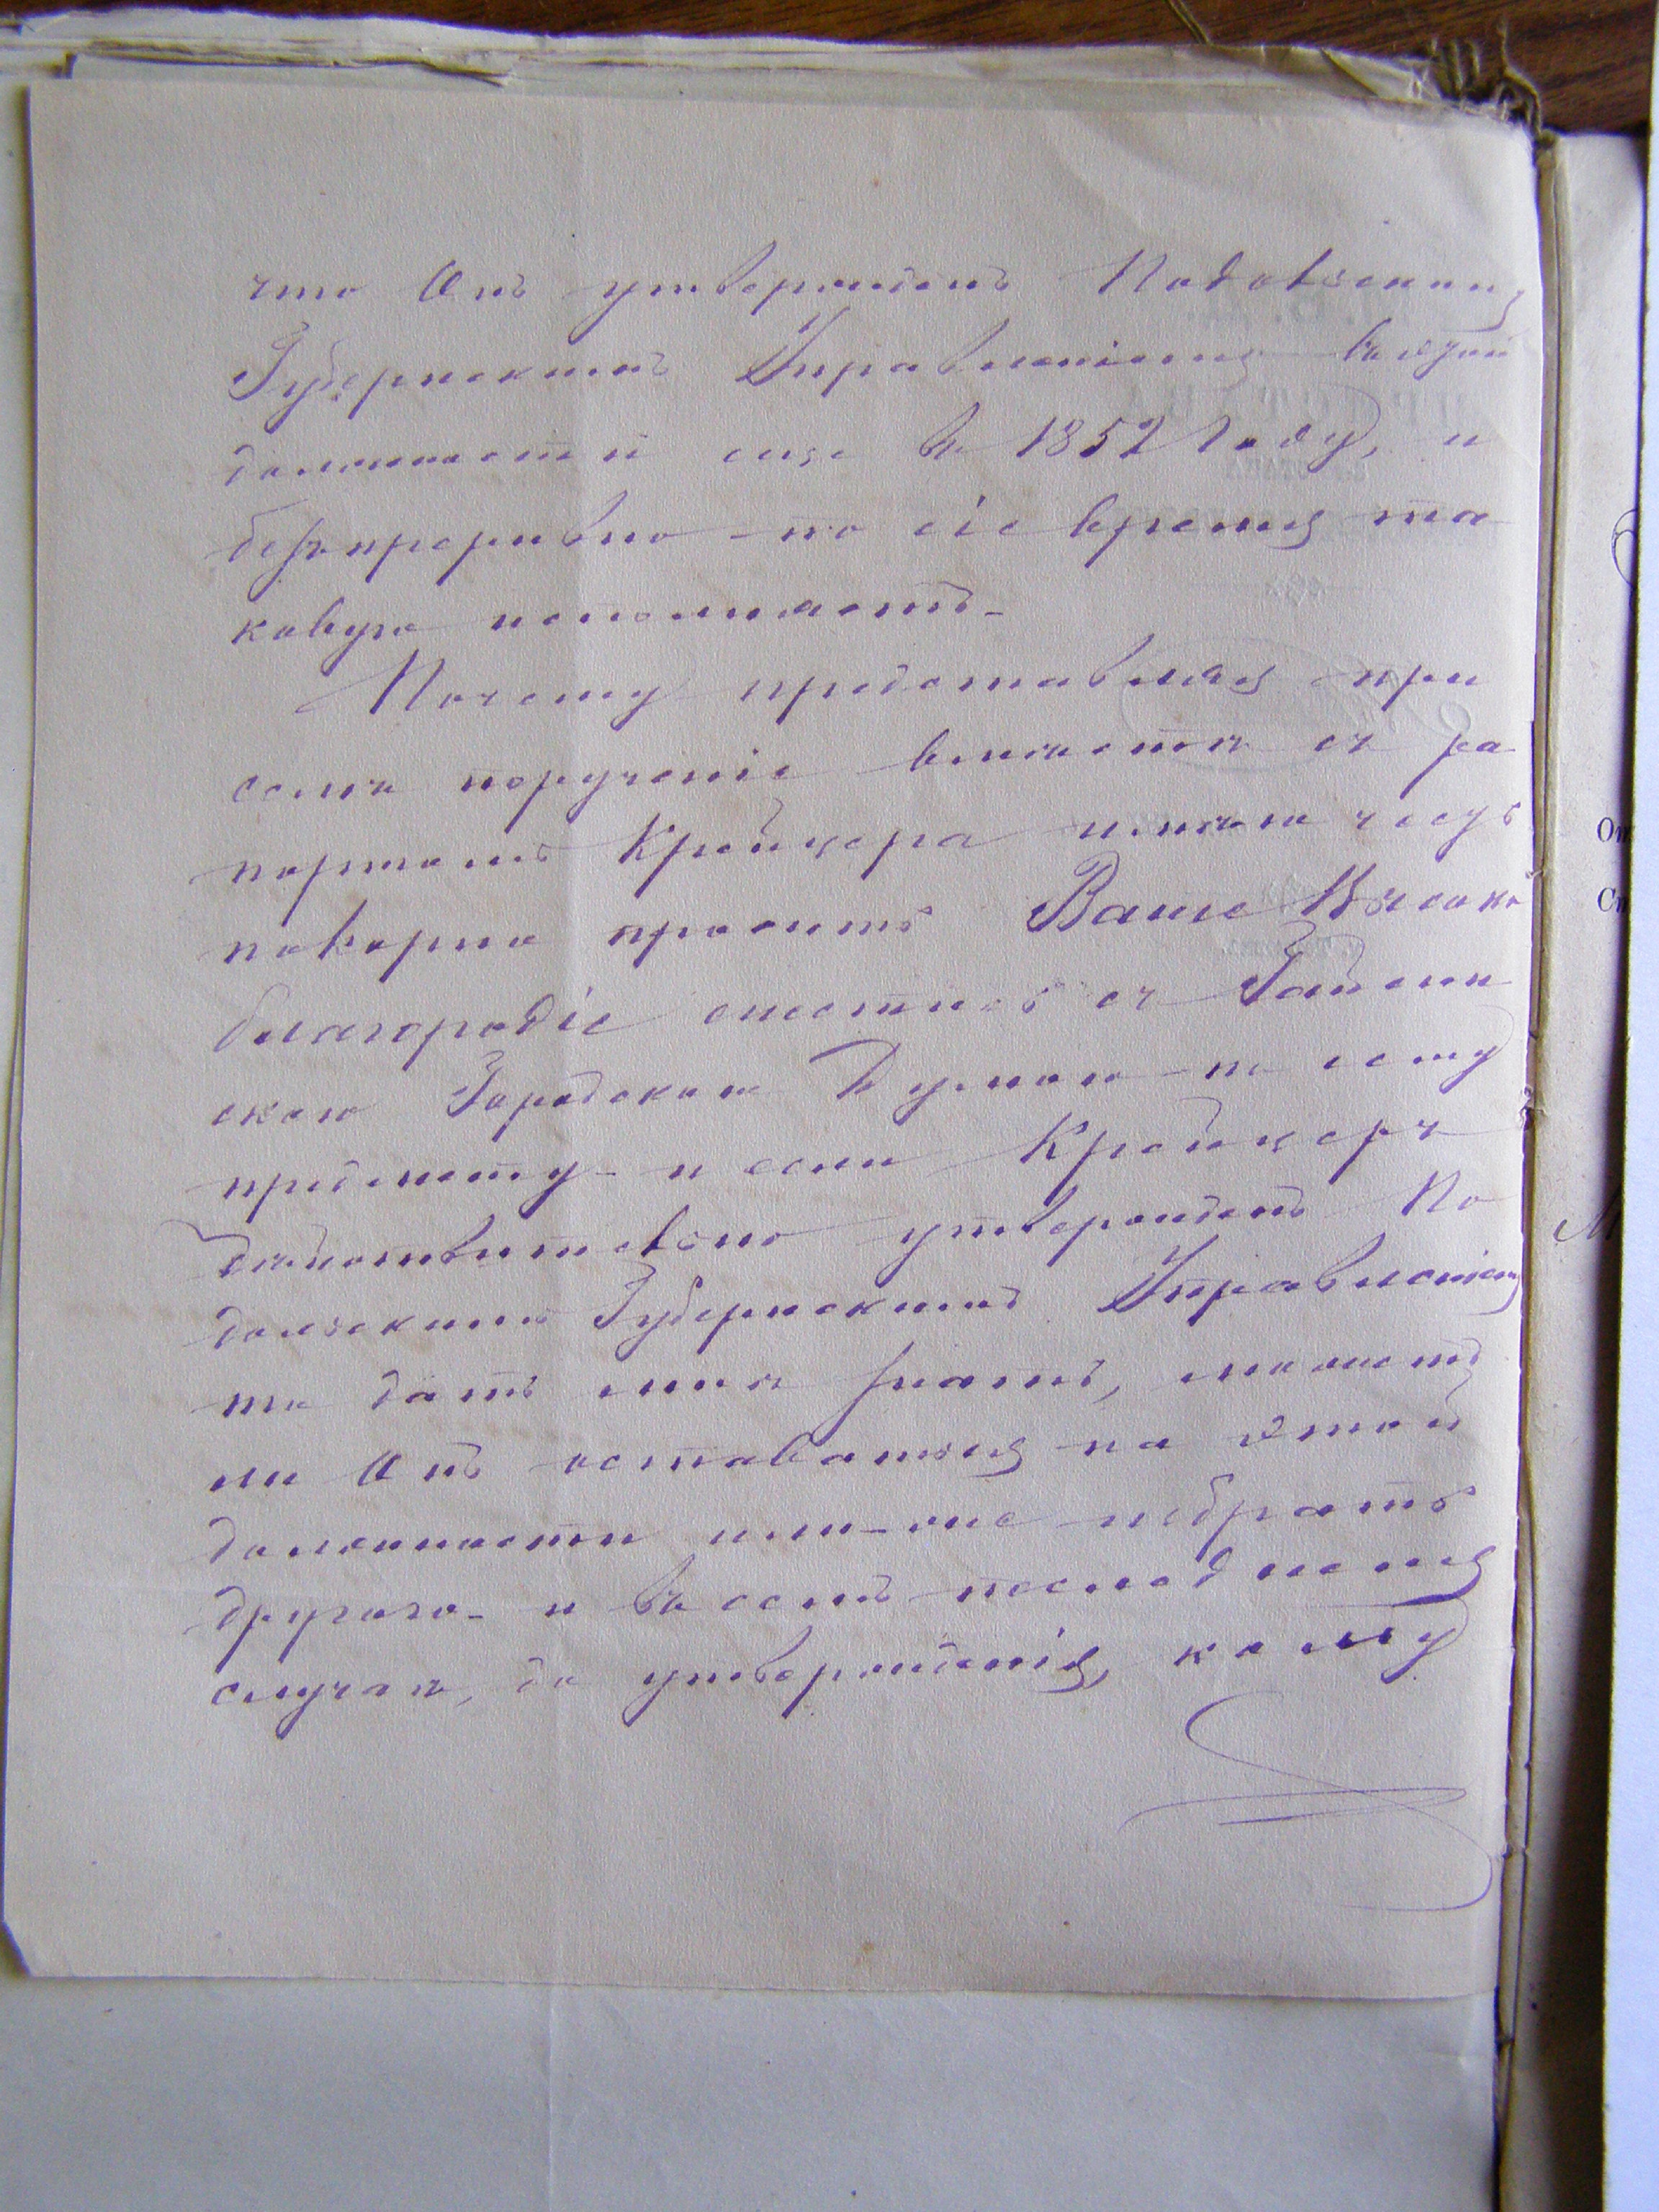 что Онъ утвержденъ Подольскимъ
Губернскимъ Управленіемъ въ этой
должности еще въ 1852 году, и
безпрерывно по сіе время та
ковую исполняетъ
Почему представляя при
семъ порученіе вместѣ съ ра
портомъ Крейцера имѣю честь
покорно просить Ваше Высоко
благородіе снестись съ Гайсин
скою Городскою Думою по сему
предмету и если Крейцеръ
действительно утвержденъ По
дольскимъ Губернскимъ Управленіемъ
то дать мнѣ знать, можетъ
ли Онъ оставаться на этой
должности или же избрать
другаго и въ семъ последнемъ
случаѣ, до утвержденія, кому
От
Сп